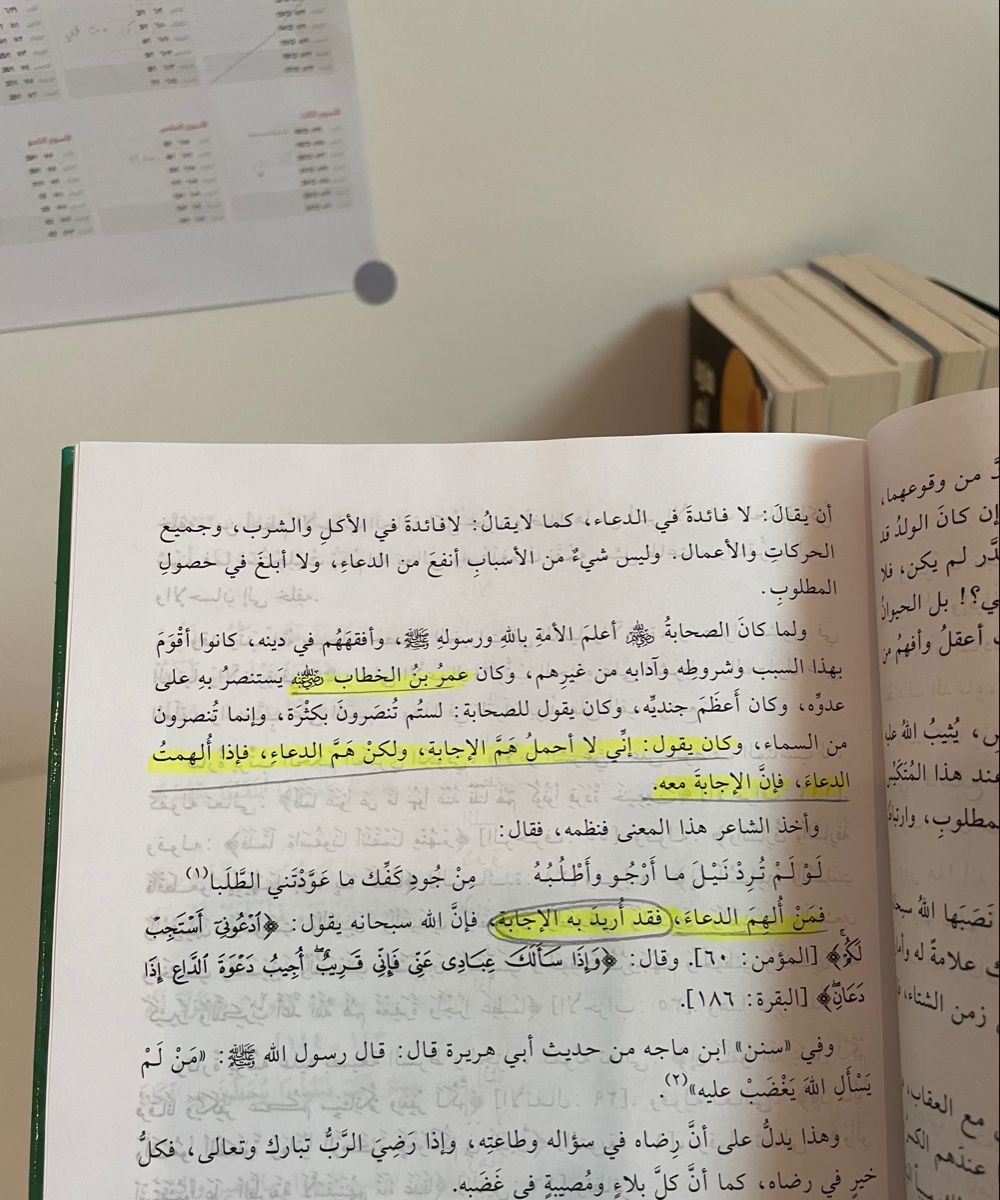 أن يقالَ: لا فائدةَ في الدعاء، كما لايقالُ: لافائدةَ في الأكلِ والشرب، وجميع
الحركاتِ والأعمال. وليس شيءٌ من الأسبابِ أنفعَ من الدعاءِ، ولا أبلغَ في حصولِ
المطلوبِ.
ولما كانَ الصحابةُ رضي الله عنهم أعلمَ الأمةِ باللهِ ورسولهِ ﷺ، وأفقهَهُم في دينه، كانوا أقْوَمَ
بهذا السببِ وشروطِه وآدابه من غيرِهم، وكان عمرُ بنُ الخطاب رضي الله عنه يَستنصرُ بهِ على
عدوِّه، وكان أَعظَمَ جنديِّه، وكان يقول للصحابة: لستُم تُنصَرونَ بكثْرَة، وإنما تُنصرون
من السماء، وكان يقول: إنِّي لا أحملُ هَمَّ الإجابة، ولكنْ هَمَّ الدعاءِ، فإذا أُلهمتُ
الدعاءَ، فإنَّ الإجابةَ معه.
وأخذ الشاعر هذا المعنى فنظمه، فقال:
لَوْ لَمْ تُرِدْ نَيْلَ ما أَرْجُو وأَطْلُبُهُ مِنْ جُودِ كَفِّك ما عَوَّدْتَني الطَّلَبا(١)
فمَنْ أُلهِمَ الدعاءَ، فقد أُريدَ به الإجابة، فإنَّ الله سبحانه يقول: ﴿ٱدْعُونِىٓ أَسْتَجِبْ
لَكُمْ﴾ [المؤمن: ٦٠]. وقال: ﴿وَإِذَا سَأَلَكَ عِبَادِى عَنِّى فَإِنِّى قَرِيبٌ أُجِيبُ دَعْوَةَ ٱلدَّاعِ إِذَا
دَعَانِ﴾ [البقرة: ١٨٦].
وفي «سنن» ابن ماجه من حديث أبي هريرة قال: قال رسول الله ﷺ: «مَنْ لَمْ
يَسْأَلِ اللهَ يَغْضَبْ عليه»(٢).
وهذا يدلُّ على أنَّ رِضاه في سؤاله وطاعتِه، وإذا رَضِيَ الرَّبُّ تبارك وتعالى، فكلُّ
خيرٍ في رضاه، كما أنَّ كلَّ بلاءٍ ومُصيبةٍ في غَضَبه.
من وقوعهما،
كانَ الولدُ قد
لم يكن، فلا
بل الحيوانُ
أعقلُ وأفهمُ من
يُثيبُ اللهُ عليه
هذا المُتَكَبِّر
نَصَبَها اللهُ
علامةً له
زمن الشتاء،
مع العقاب،
عندَهم